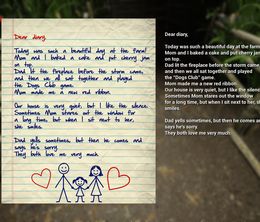 Dear diary,
Today was such a beautiful day at the farm!
Mom and I baked a cake and put cherry jam
on top.
Dad lit the fireplace before the storm came,
and then we all sat together and played
the Dogs Club game.
Mom made me a new red ribbon.
Our house is very quiet, but I like the silence.
Sometimes Mom stares out the window
for a long time, but when I sit next to her,
she smiles.
Dad yells sometimes, but then he comes and
says he's sorry.
They both love me very much.
Dear diary,
Today was such a beautiful day at the farm
Mom and I baked a cake and put cherry jam
on top.
Dad lit the fireplace before the storm came
and then we all sat together and played
the "Dogs Club" game.
Mom made me a new ribbon.
Our house is very quiet, but I like the silence
Sometimes Mom stares out the window
for a long time, but when I sit next to her, s
smiles.
Dad yells sometimes, but then he comes an
says he's sorry.
They both love me very much